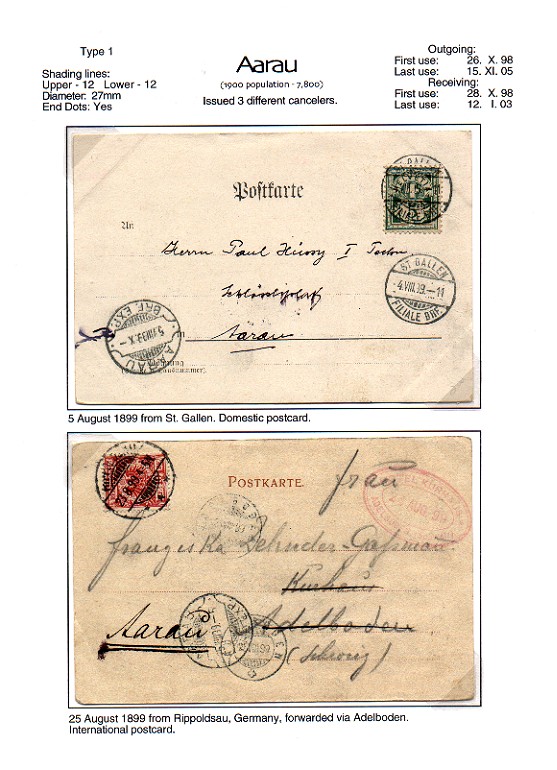 Type 1
Shading lines:
Upper - 12 Lower - 12
Diameter: 27mm
End Dots: Yes
Aarau
(1900 population - 7,800)
Issued 3 different cancelers.
Outgoing:
First use: 26. X. 98
Last use: 15. XI. 05
Receiving:
First use: 28. X. 98
Last use: 12. I. 03
Postkarte
An
Herrn Paul
Aarau
ST. GALLEN
-4.VIII.99.-11
FILIALE BRF.
AARAU
BRF. EXP.
5 August 1899 from St. Gallen. Domestic postcard.
POSTKARTE.
Frau
Franziska Zehnder-Gaßmann
Kurhaus
Aarau Adelboden
(Schweiz)
25 August 1899 from Rippoldsau, Germany, forwarded via Adelboden.
International postcard.